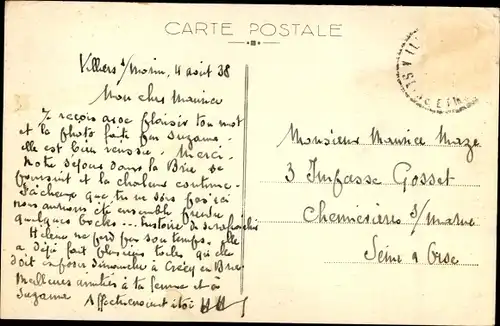 CARTE POSTALE
Villiers s/Morin, 4 août 38
Mon cher Maurice
Je reçois avec plaisir ton mot
et la photo faite par Suzanne.
elle est bien réussie. Merci.
Notre séjour dans la Brie se
poursuit et la chaleur continue.
Fâcheux que tu ne sois pas ici
nous aurions été ensemble prendre
quelques bocks... histoire de se rafraîchir
Hélène ne perd pas son temps. Elle
a déjà fait plusieurs toiles qu'elle
doit exposer dimanche à Crécy en Brie
Meilleures amitiés à ta femme et à
Suzanne Affectueusement à toi
Monsieur Maurice Maze
3 Impasse Gosset
Chennevières s/ Marne
Seine & Oise